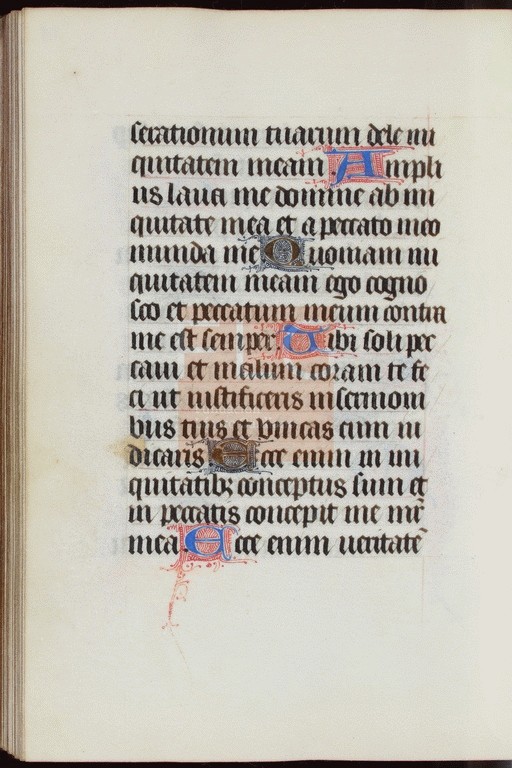 serationum tuarum dele ini
quitatem meam. Ampli
us laua me domine ab ini
quitate mea et a peccato meo
munda me Quoniam ini
quitatem meam ego cogno
sco et peccatum meum contra
me est semper. Tibi soli pec
caui et malum coram te fe
ci ut iustificeris in sermoni
bus tuis et vincas cum iu
dicaris. Ecce enim in ini
quitatibꝫ conceptus sum et
in peccatis concepit me mr̄
mea. Ecce enim ueritatē